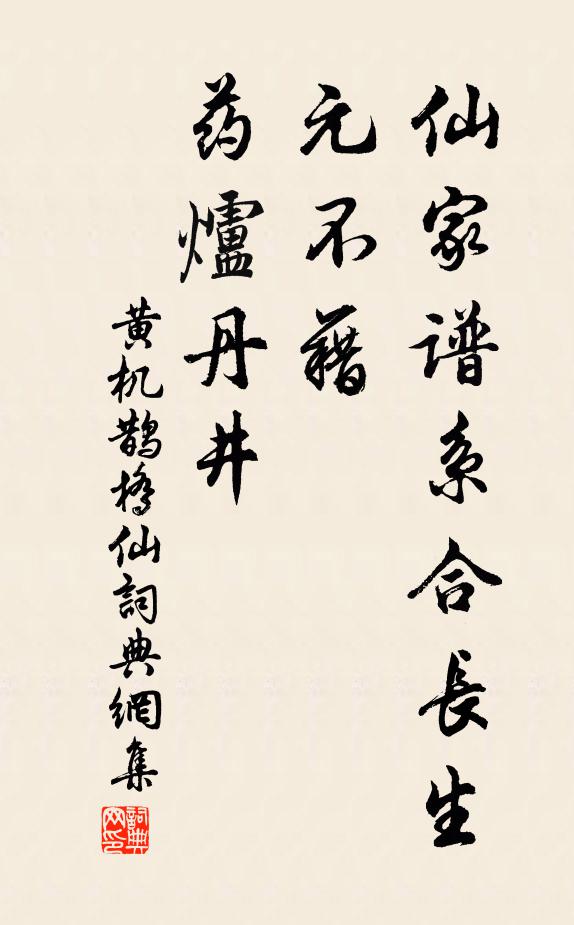 仙家谱系合長生
元不藉
药爐丹井
黄机鹊橋仙詞典網集
詞典网印